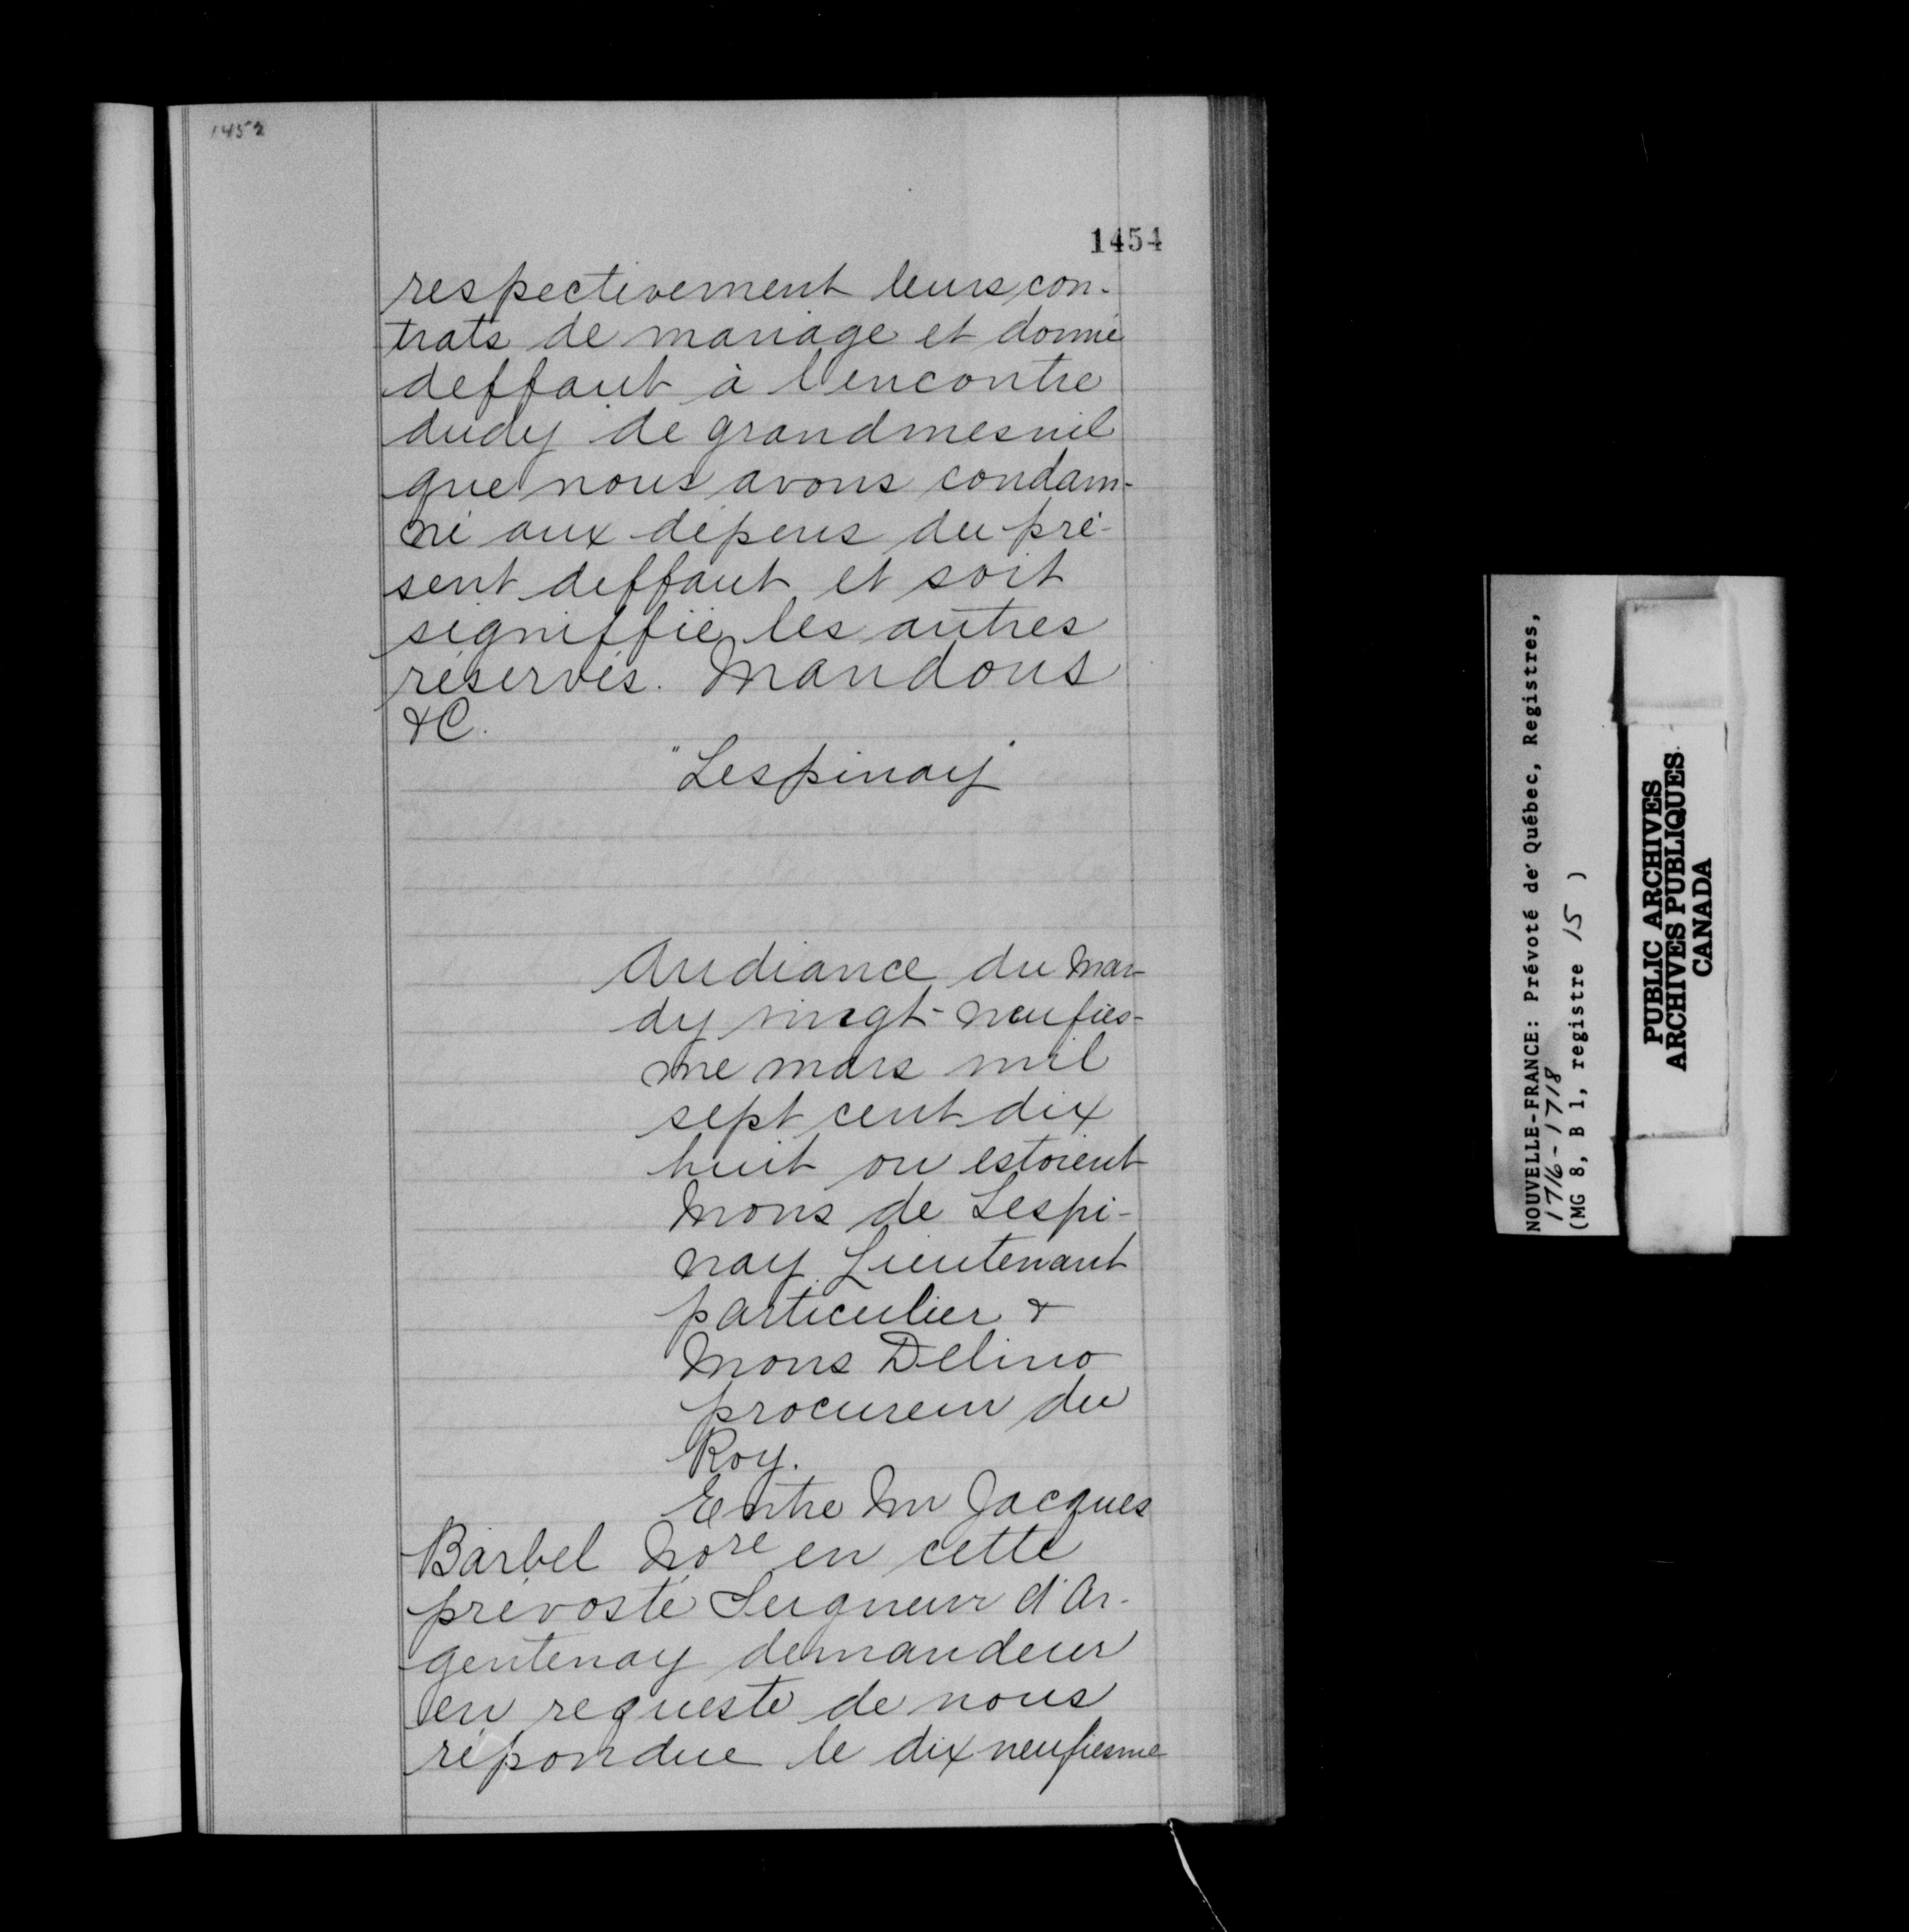 1452
1454
respectivement leurs con-
trats de mariage et donné
deffaut à l'encontre
dudy de grandmesnil
que nous avons condam-
né aux dépens du pré-
sent deffaut et soit
signiffié, les autres
réservés. Mandons
&C.
"Lespinay"
Audiance du mar-
dy vingt-neufies-
me mars mil
sept cent dix
huit ou estoient
Mons de Lespi-
nay Lieutenant
particulier &
Mons Delino
procureur du
Roy.
Entre Mr Jacques
Barbel Nore en cette
prévosté Seigneur d'Ar-
gentenay demandeur
en requeste de nous
répondue le dix neufiesme
NOUVELLE-FRANCE: Prévoté de Québec, Registres,
1716-1718
(MG 8, B 1, registre 15 )
PUBLIC ARCHIVES
ARCHIVES PUBLIQUES
CANADA